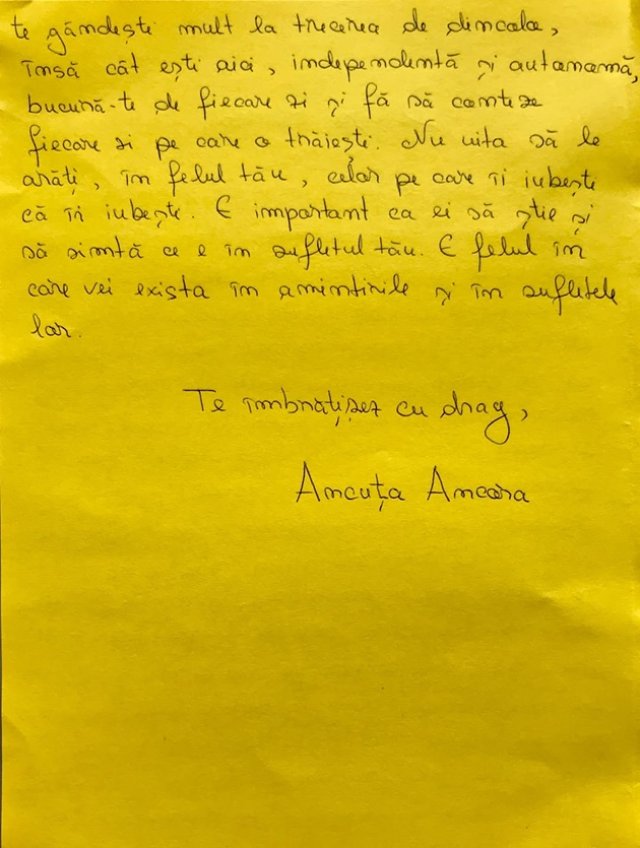 te gândești mult la trecerea de dincolo,
însă cât ești aici, independentă și autonomă,
bucură-te de fiecare zi și fă să conteze
fiecare zi pe care o trăiești. Nu uita să le
arăți, în felul tău, celor pe care îi iubește
că îi iubește. E important ca ei să știe și
să simtă ce e în sufletul tău. E felul în
care vei exista în amintirile și în sufletele
lor.
Te îmbrățișez cu drag,
Ancuța Ancora